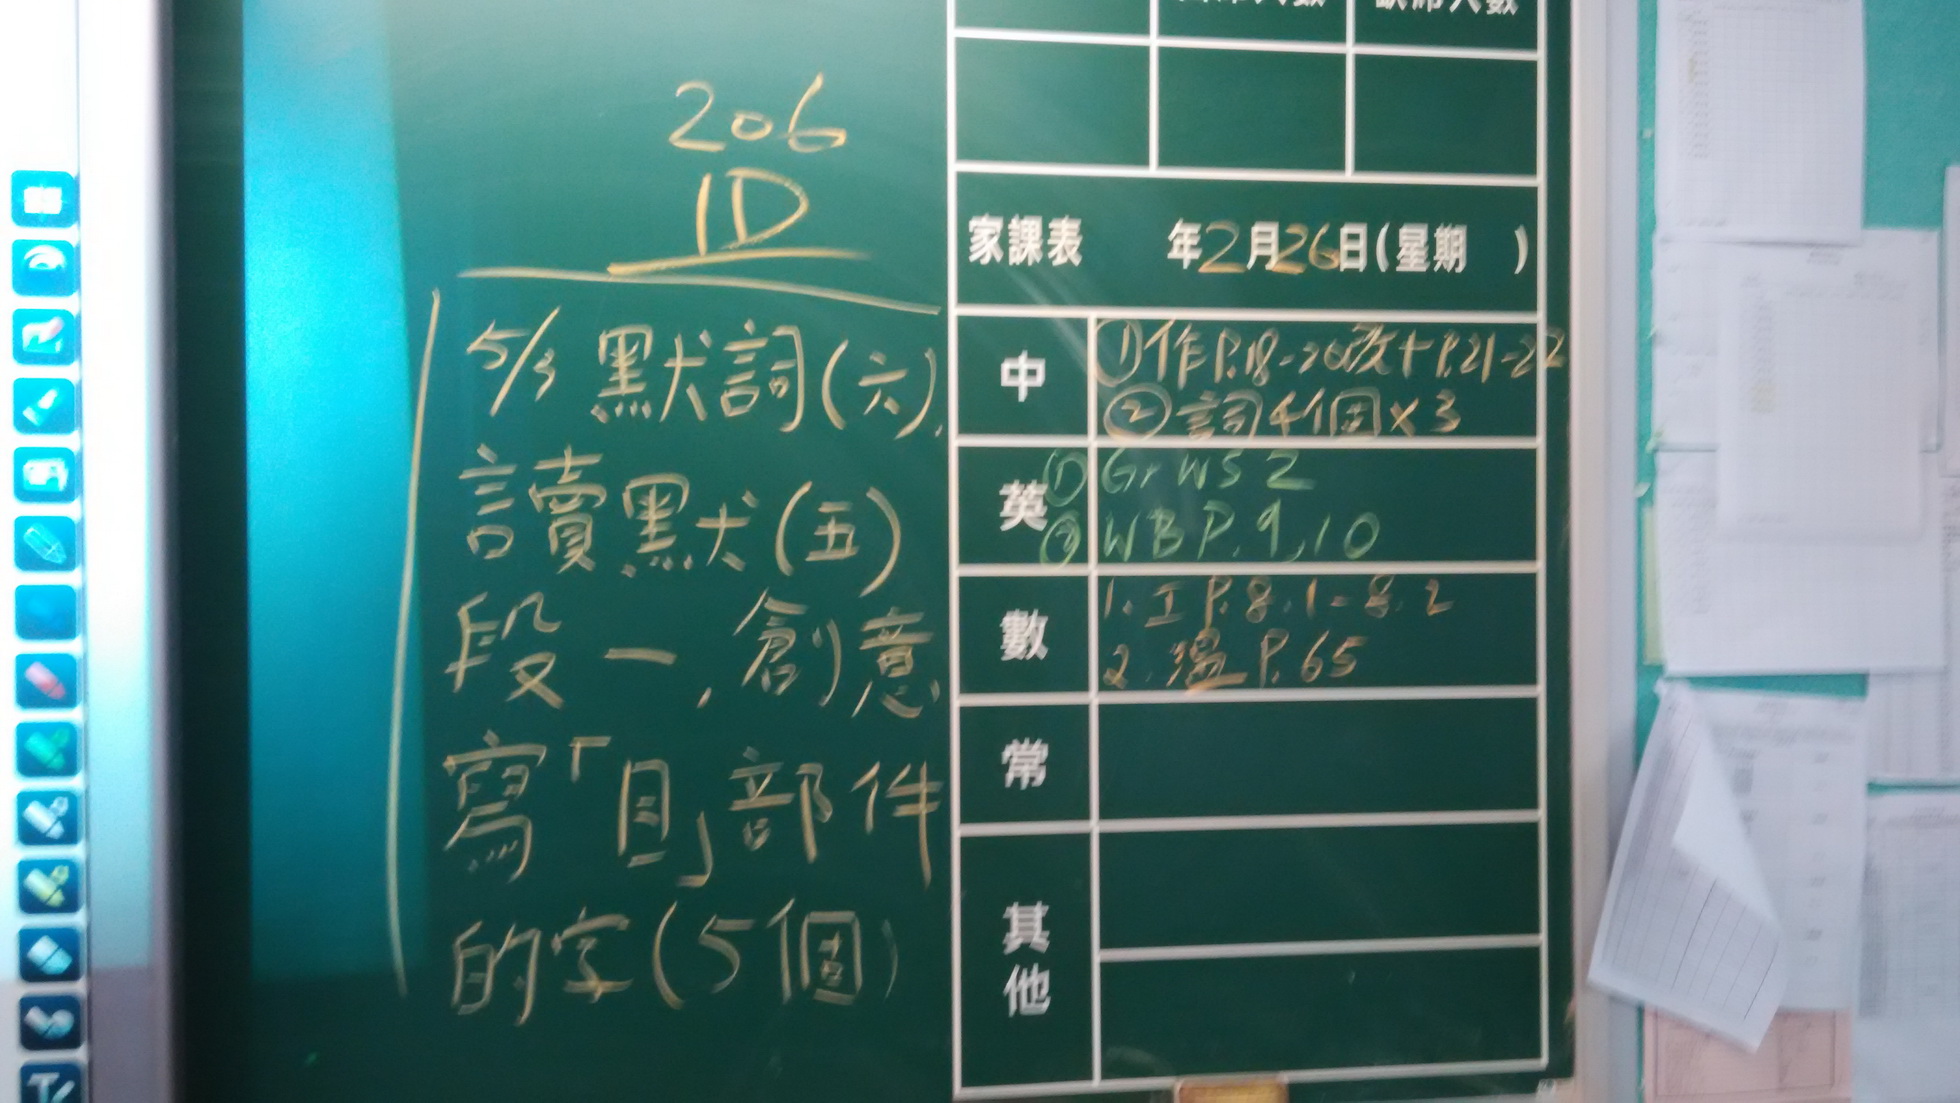 席人數
缺席人數
206
1D
5/3 默詞(六),
讀默(五)
段一,創意
寫「目」部件
的字(5個)
家課表 年2月26日(星期 )
中 ①作P.18-20改+P.21-22
②詞4個×3
英 ①Gr WS 2
②WB P.9,10
數 1. 工 P.8.1-8.2
2. 溫 P.65
常
其他